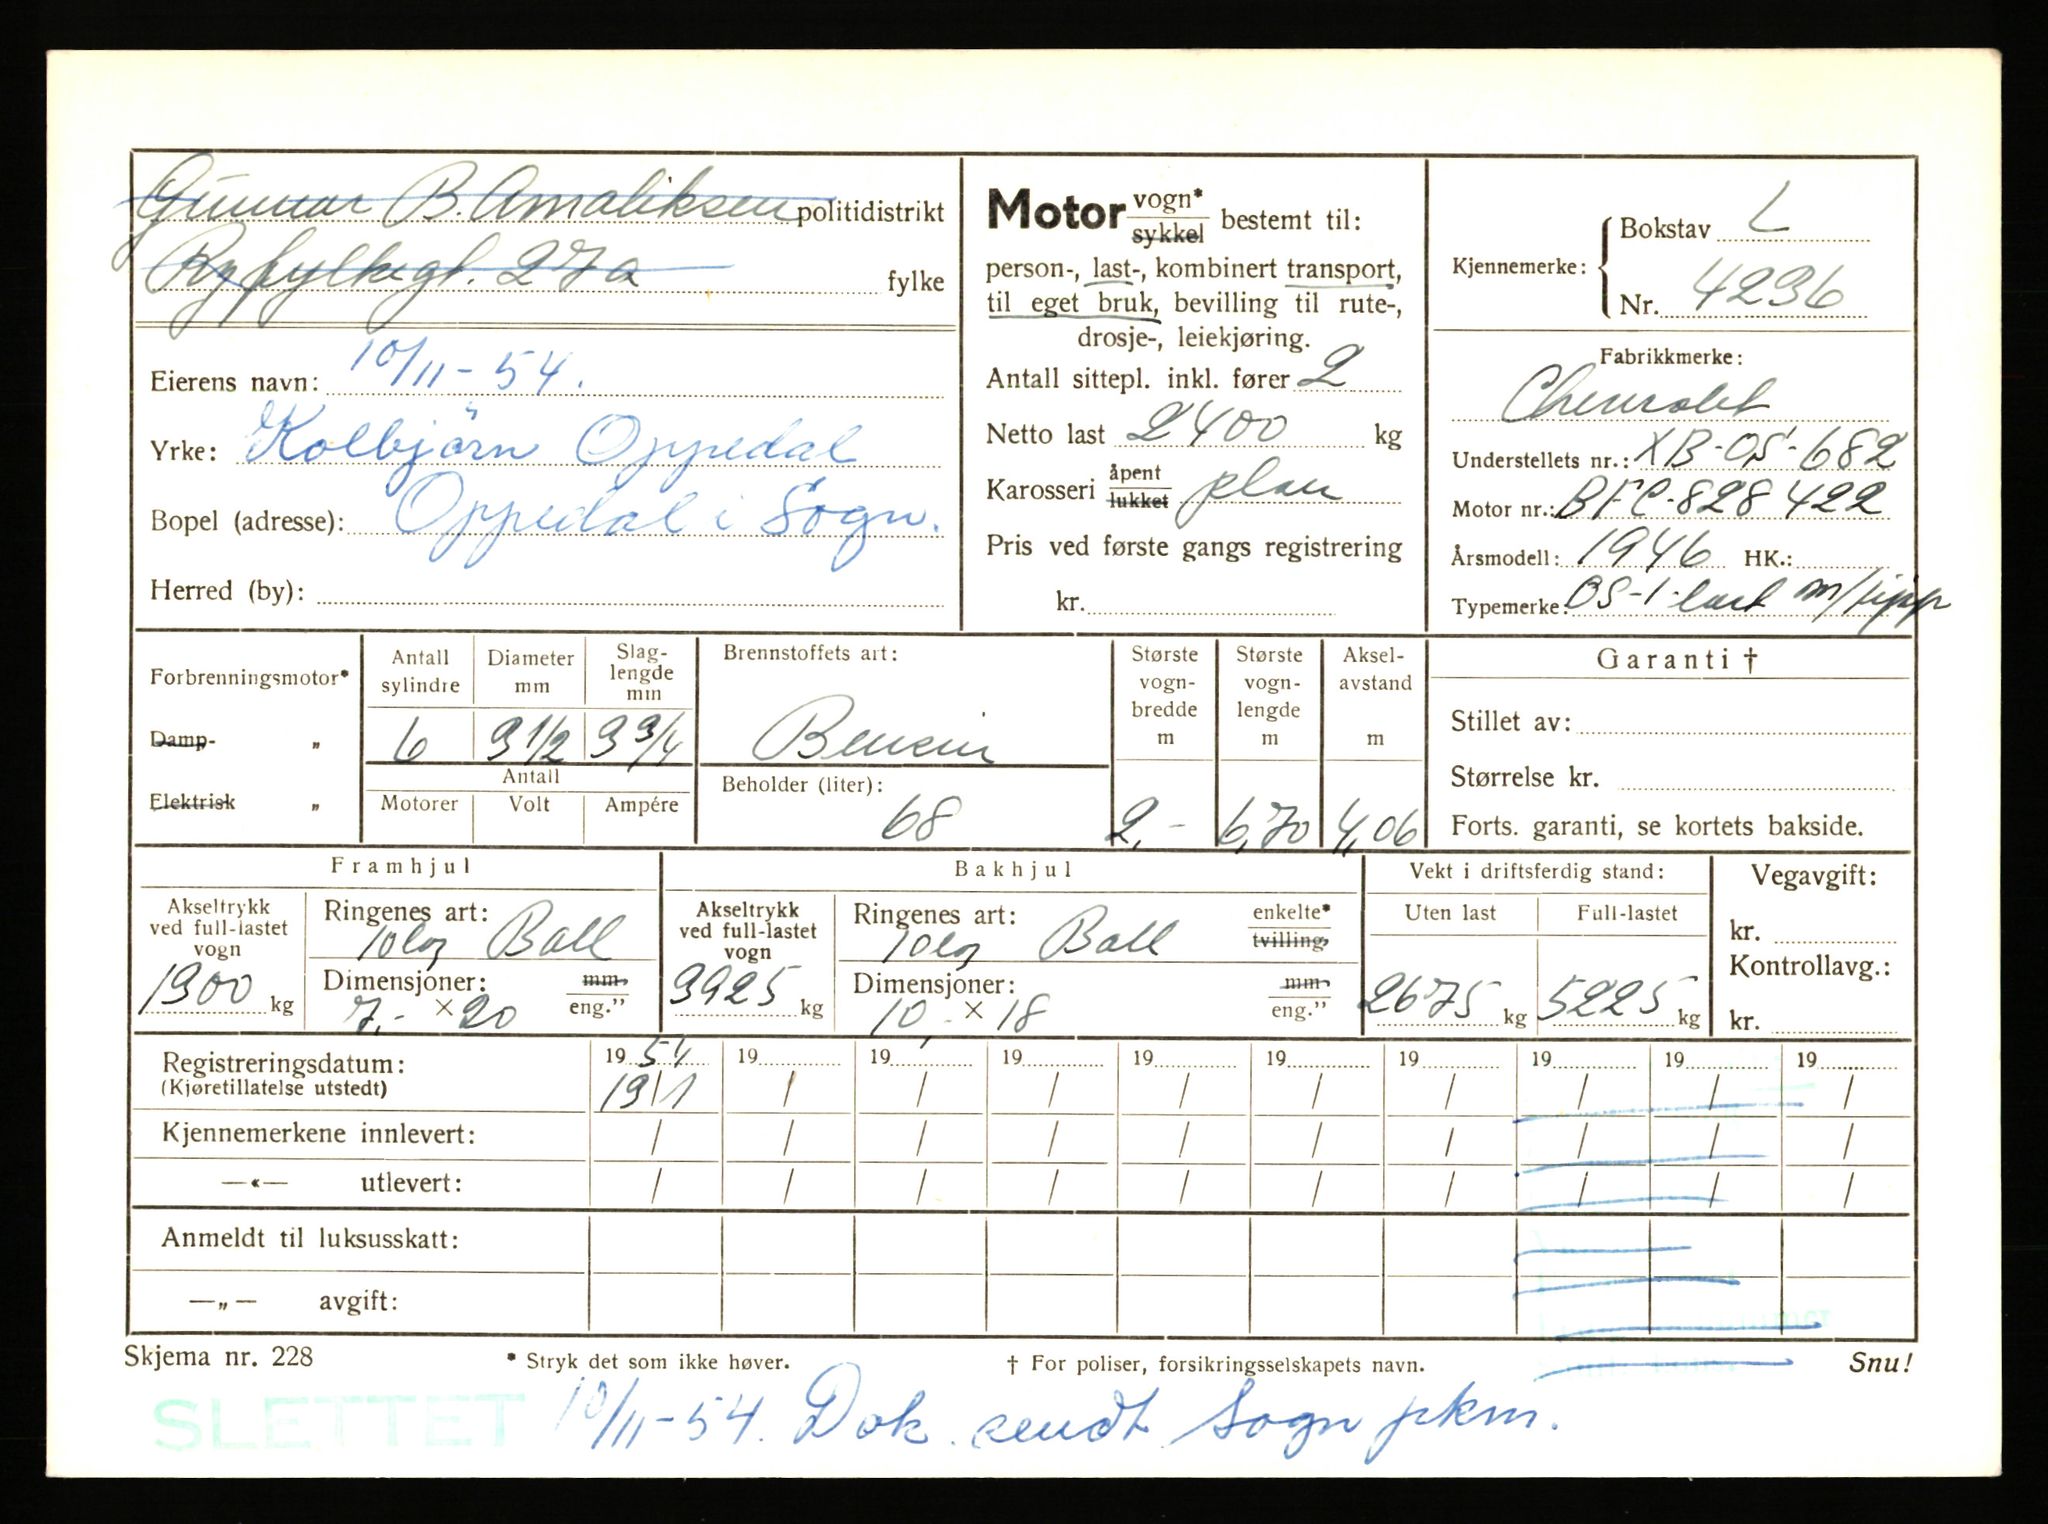 Gunnar B. Amaliksen politidistrikt
Ryfylkegt. 27a fylke
10/11-54.
Eierens navn:
Yrke: Kolbjörn Oppedal
Bopel (adresse): Oppedal i Sogn.
Herred (by):
Motor vogn* sykkel bestemt til:
person-, last-, kombinert transport,
til eget bruk, bevilling til rute-,
drosje-, leiekjøring.
Antall sittepl. inkl. fører 2
Netto last 2400 kg
Karosseri åpent lukket plan
Pris ved første gangs registrering
kr.
Kjennemerke: Bokstav L
Nr. 4236
Fabrikkmerke:
Chevrolet
Understellets nr.: XB-OS-682
Motor nr.: BFC-828422
Årsmodell: 1946 HK.:
Typemerke: OS-1-last m/tipp
Forbrenningsmotor*
Damp- „
Elektrisk „
Antall sylindre Diameter mm Slag-lengde min
6 3 1/2 3 3/4
Antall
Motorer Volt Ampére
Brennstoffets art:
Bensin
Beholder (liter):
68
Største vogn-bredde m
2,-
Største vogn-lengde m
6,70
Aksel-avstand m
4,06
Garanti †
Stillet av:
Størrelse kr.
Forts. garanti, se kortets bakside.
Framhjul
Akseltrykk ved full-lastet vogn
1300 kg
Ringenes art:
10lag Ball
Dimensjoner: mm eng.”
7,- × 20
Bakhjul
Akseltrykk ved full-lastet vogn
3925 kg
Ringenes art: enkelte* tvilling
10lag Ball
Dimensjoner: mm eng.”
10 - × 18
Vekt i driftsferdig stand:
Uten last Full-lastet
2675 kg 5225 kg
Vegavgift:
kr.
Kontrollavg.:
kr.
Registreringsdatum: 19 54 19 19 19 19 19 19 19 19 19
(Kjøretillatelse utstedt) 19/1 / / / / / / / / /
Kjennemerkene innlevert: / / / / / / / / / /
—«— utlevert: / / / / / / / / / /
Anmeldt til luksusskatt:
—„— avgift:
Skjema nr. 228 * Stryk det som ikke høver. † For poliser, forsikringsselskapets navn. Snu!
SLETTET 10/11-54. Dok. sendt Sogn pkm.